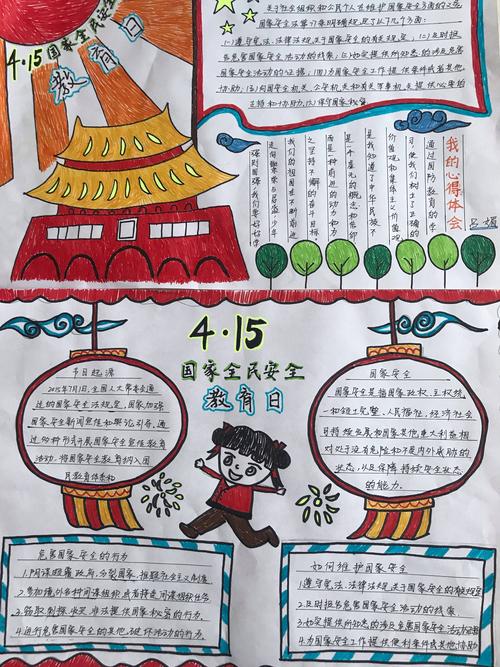 4·15国家安全
教育日
关于社会组织和公民个人在维护国家安全方面的义务
国家安全法第77条明确规定了以下几个方面:
(一)遵守宪法、法律法规关于国家安全的有关规定,(二)及时报
告危害国家安全活动的线索;(三)如实提供所知悉的涉及危害
国家安全活动的证据,(四)为国家安全工作提供便利条件或者其他
协助,(五)向国家安全机关、公安机关和有关军事机关提供必要的
支持和协助,(六)保守国家秘密
我的心得体会
吕
通过国防教育的学
习,使我们树立了正确的
价值观和集体主义价值观
是我知道了中华民族不
是一个喜光的概念和信仰
而是一种前进的动力和方
之坚持不懈的奋斗目标
我们的祖国正不断前进
走向繁荣昌盛,少年
强则国强,我们要好好学
4·15
国家全民安全
教育日
节日起源
2015年7月1日,全国人大常委会通
过的国家安全法规定,国家加强
国家安全新闻宣传和舆论引导,通
过多种形式开展国家安全宣传教育
活动,将国家安全教育纳入国
民教育体系和
国家安全
国家安全是指国家政权、主权、统
一和领土完整、人民福祉、经济社会
可持续发展和国家其他重大利益相
对处于没有危险和不受内外威胁的
状态,以及保障持续安全状态
的能力.
危害国家安全的行为
1.阴谋颠覆政府,分裂国家,推翻社会主义制度
2.参加境外各种间谍组织或者接受间谍组织任务
3.窃取、刺探、收买、非法提供国家秘密的行为.
4.进行危害国家安全的其他破坏活动的行为.
如何维护国家安全
1.遵守宪法、法律法规关于国家安全的有关规定
2.及时报告危害国家安全活动的线索
3.如实提供所知悉的涉及危害国家安全活动
4.为国家安全工作提供便利条件或其他协助